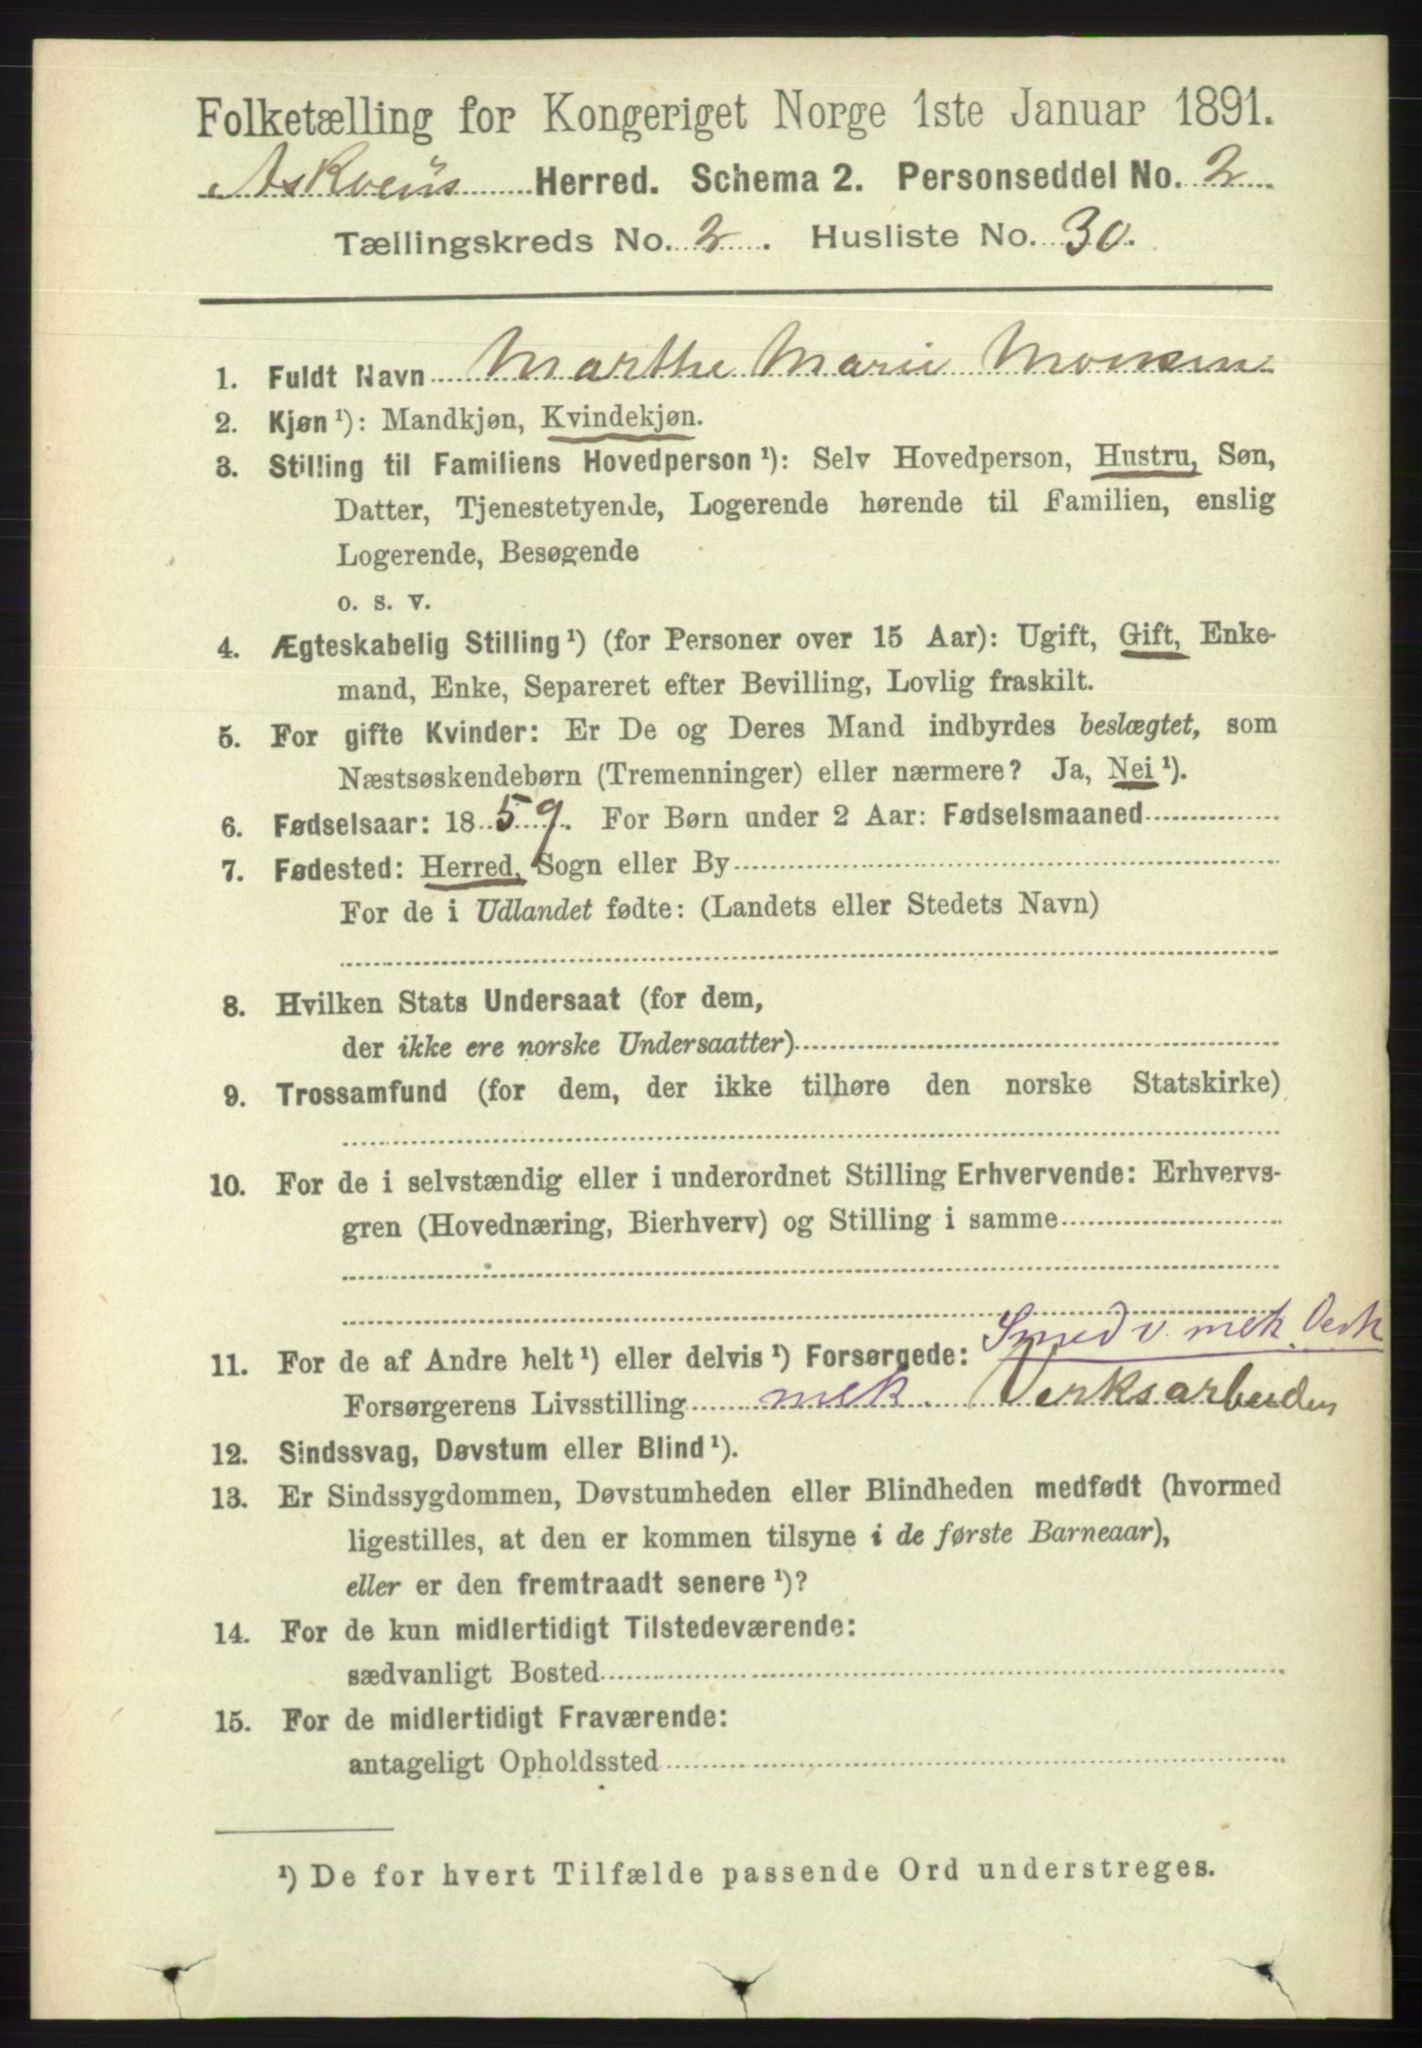 Folketælling for Kongeriget Norge 1ste Januar 1891.
Askvens Herred. Schema 2. Personseddel No. 2
Tællingskreds No. 2. Husliste No. 30.
1. Fuldt Navn Marthe Marie Monsen
2. Kjøn ¹): Mandkjøn, Kvindekjøn.
3. Stilling til Familiens Hovedperson ¹): Selv Hovedperson, Hustru, Søn,
Datter, Tjenestetyende, Logerende hørende til Familien, enslig
Logerende, Besøgende
o. s. v.
4. Ægteskabelig Stilling ¹) (for Personer over 15 Aar): Ugift, Gift, Enke-
mand, Enke, Separeret efter Bevilling, Lovlig fraskilt.
5. For gifte Kvinder: Er De og Deres Mand indbyrdes beslægtet, som
Næstsøskendebørn (Tremenninger) eller nærmere? Ja, Nei ¹).
6. Fødselsaar: 1859. For Børn under 2 Aar: Fødselsmaaned
7. Fødested: Herred, Sogn eller By
For de i Udlandet fødte: (Landets eller Stedets Navn)
8. Hvilken Stats Undersaat (for dem,
der ikke ere norske Undersaatter)
9. Trossamfund (for dem, der ikke tilhøre den norske Statskirke)
10. For de i selvstændig eller i underordnet Stilling Erhvervende: Erhvervs-
gren (Hovednæring, Bierhverv) og Stilling i samme
Smed v. mek. Verk
11. For de af Andre helt ¹) eller delvis ¹) Forsørgede:
Forsørgerens Livsstilling mek. Verksarbeider
12. Sindssvag, Døvstum eller Blind ¹).
13. Er Sindssygdommen, Døvstumheden eller Blindheden medfødt (hvormed
ligestilles, at den er kommen tilsyne i de første Barneaar),
eller er den fremtraadt senere ¹)?
14. For de kun midlertidigt Tilstedeværende:
sædvanligt Bosted
15. For de midlertidigt Fraværende:
antageligt Opholdssted
¹) De for hvert Tilfælde passende Ord understreges.